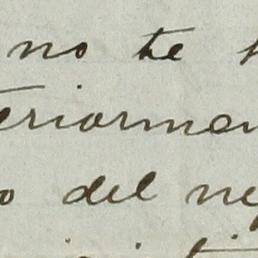 no te
teriormen
o del ne